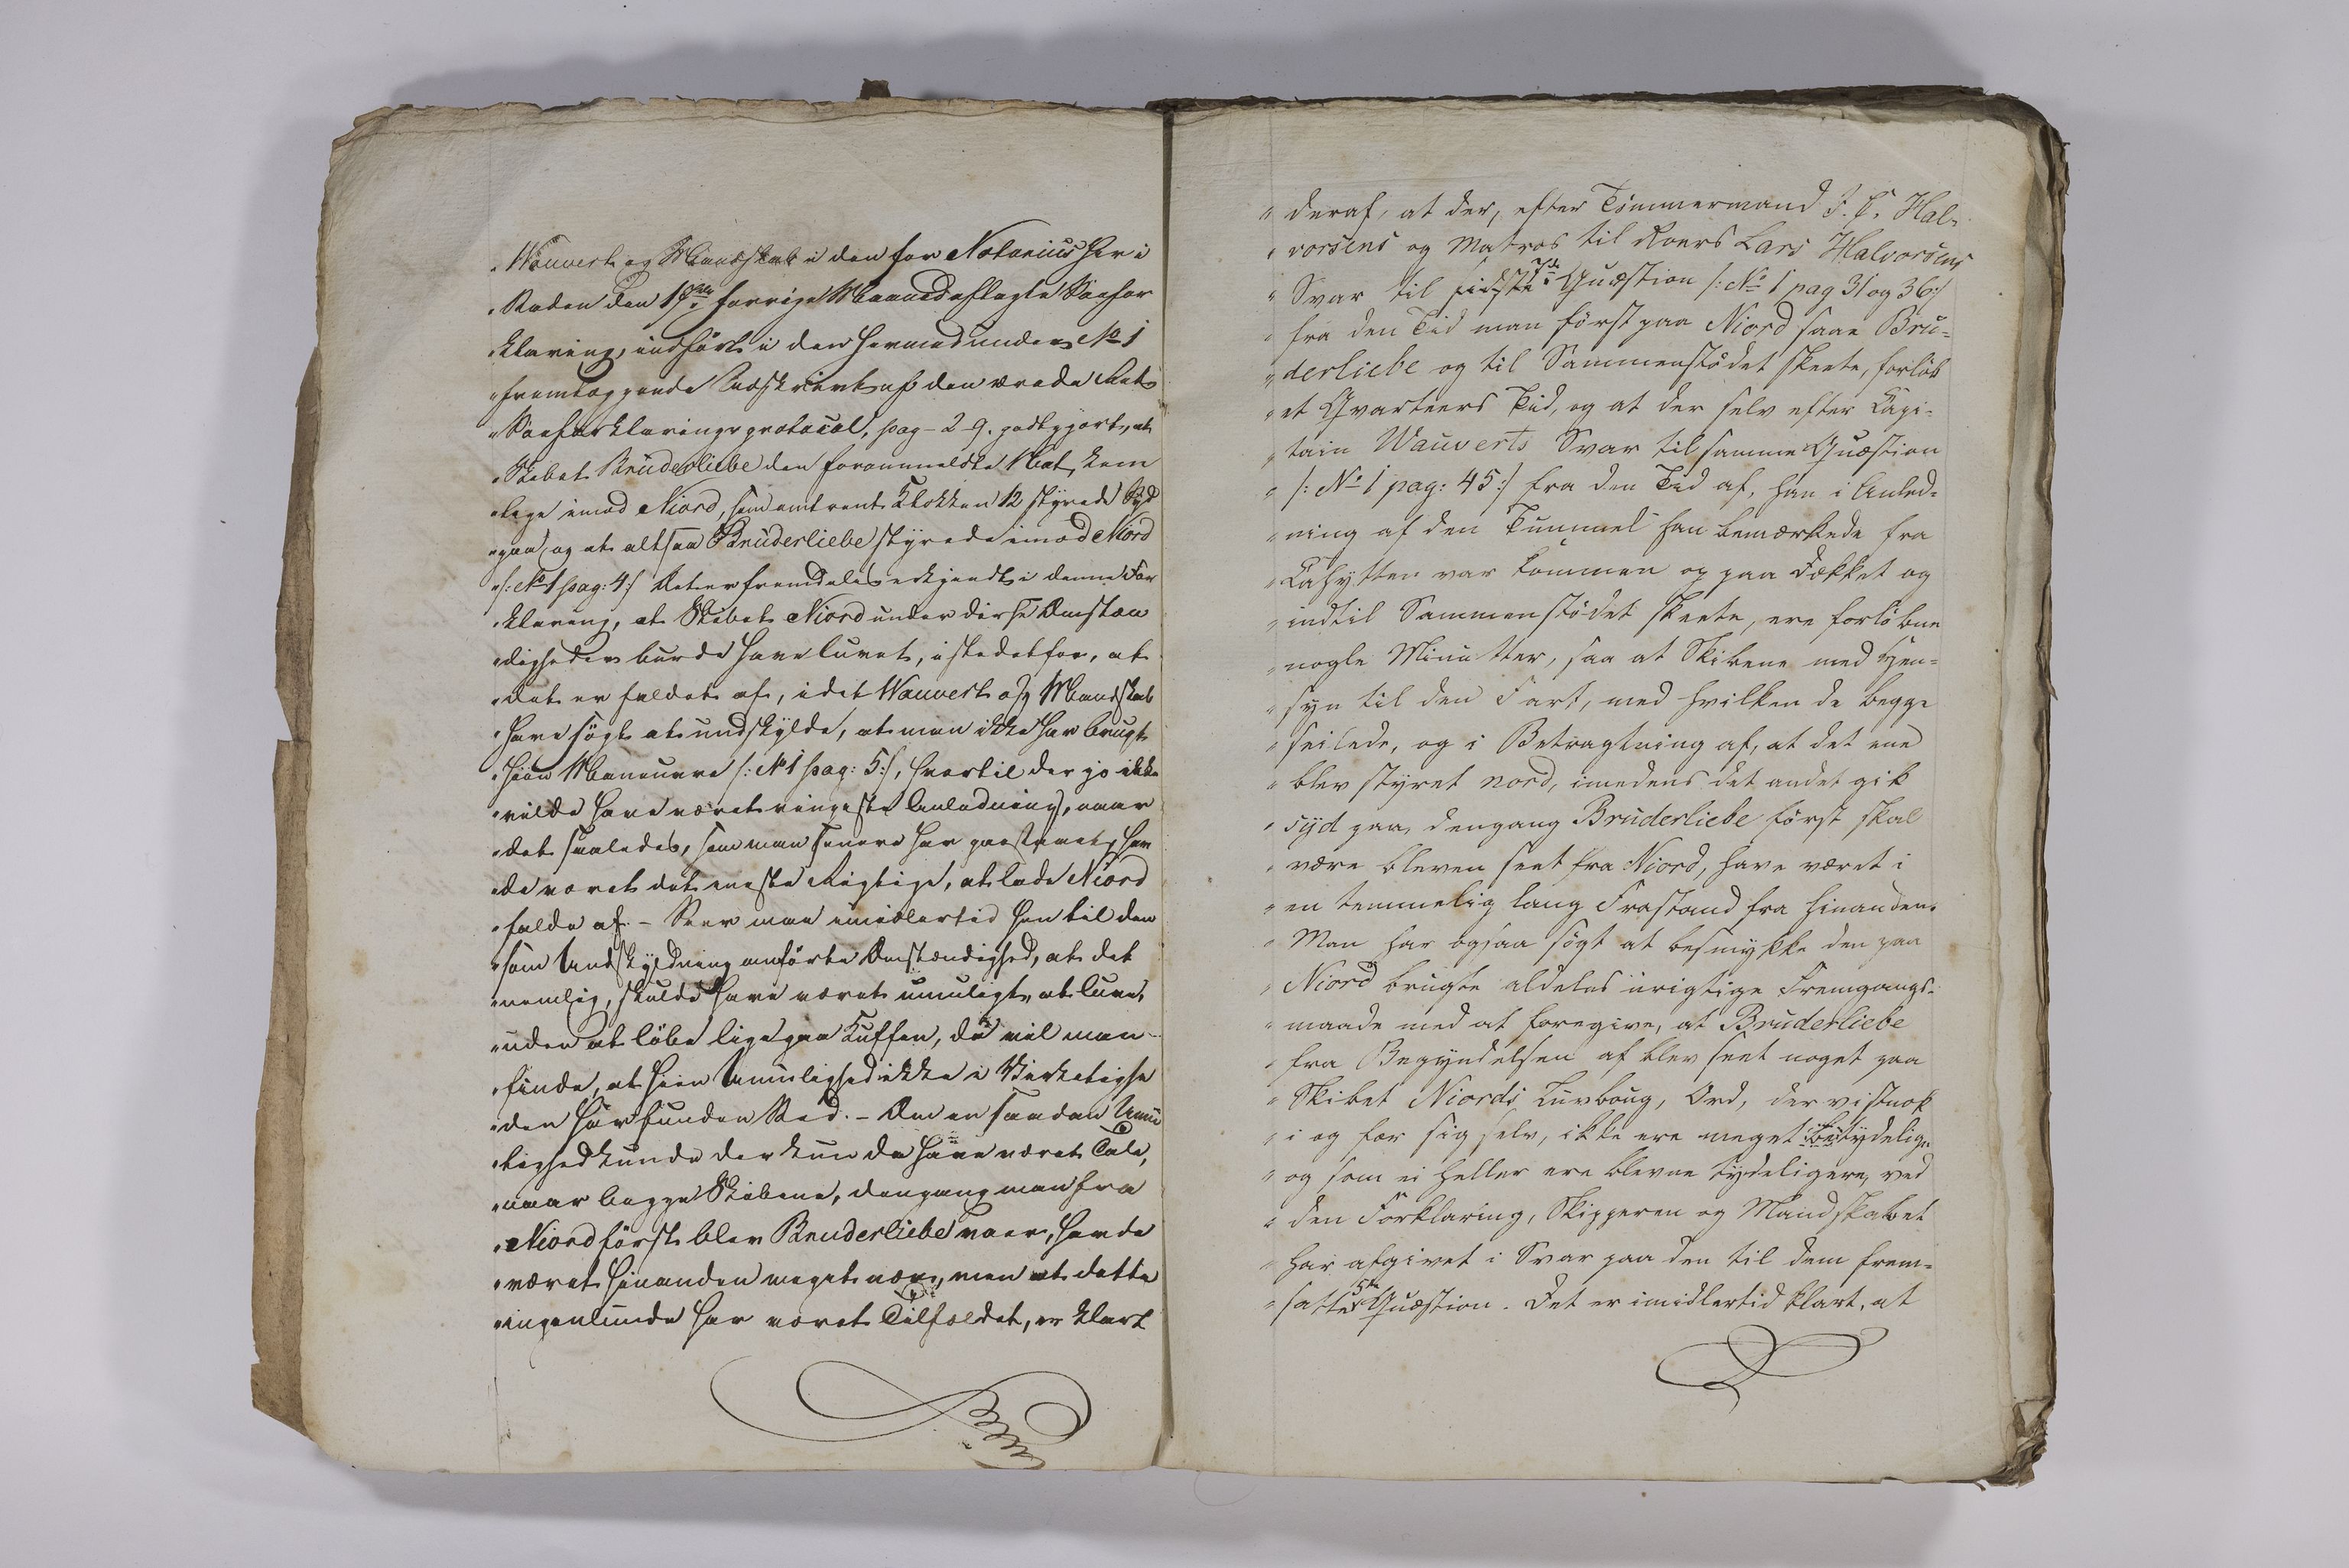 "Wauvert og Mandskab i den for Notarius her i
"Staden den 17de forrige Maaned aflagte Søefor
"klaring, indført i den hermed under No 1
"fremlæggende Udskrivt af den ærede Rets
"Søeforklarings protocol, pag - 2-9. godtgjort, at
"Skibet Brüderliebe den foranmeldte Nat, kom
"lige imod Niord, som omtrent Klokken 12 styrede Syd
"paa, og at altsaa Brüderliebe styrede imod Niord
"/: No 1 pag: 4:/ Det er fremdeles erkjendt i denne For
"klaring, at Skibet Niord under disse Omstæn
"digheder burde have luvet, istedetfor, at
"det er faldet af, idet Wauvert og Mandskab
"have søgt at undskylde, at man ikke har brugt
"hiin Maneuvre /: No 1 pag: 5:/, hvortil der jo ikke
"vilde have været ringeste Anledning, naar
"det saaledes, som man senere har paastaaet, hav
"de været det eneste Rigtige, at lade Niord
"falde af. - Seer man imidlertid hen til den
"som Undskyldning anførte Omstændighed, at det
"nemlig, skulde have været umuligt, at luve,
"uden at løbe lige paa Kuffen, da vil man
"finde, at hiin Umulighed ikke i Virkelighe
"den har funden Sted. - Om en saadan Umu
"lighed kunde der kun da have været Tale,
"naar begge Skibene, dengang man fra
"Niord først blev Bruderliebe vaer, havde
"været hinanden meget nær, men at dette
"ingenlunde har været Tilfældet, er klart
"deraf, at der, efter Tömmermand J. C. Hal-
"vorsens og Matros til Roers Lars Halvorsens
"Svar til sidste 7de Quæstion /: No 1 pag 31 og 36:/
"fra den Tid man först paa Niord saae Brü-
"derliebe og til Sammenstödet skeete, forlöb
"et Qvarteers Tid, og at der selv efter Capi-
"tain Wauverts Svar til samme Quæstion
"/: No 1 pag: 45:/ fra den Tid af, han i Anled-
"ning af den Tummel han bemærkede fra
"Cahytten var kommen op paa Dækket og
"indtil Sammenstödet skeete, ere forlöbne
"nogle Minutter, saa at Skibene med Hen-
"syn til den Fart, med hvilken de begge
"seilede, og i Betragtning af, at det ene
"blev styret nord, imedens det andet gik
"syd paa, dengang Bruderliebe först skal
"være bleven seet fra Niord, have været i
"en temmelig lang Frastand fra hinanden.
"Man har ogsaa sögt at besmykke den paa
"Niord brugte aldeles urigtige Fremgangs-
"maade med at foregive, at Bruderliebe
"fra Begyndelsen af blev seet noget paa
"Skibet Niords Luvboug, Ord, der vistnok
"i og for sig selv, ikke ere meget betydelige
"og som ei heller ere blevne tydeligere, ved
"den Forklaring, Skipperen og Mandskabet
"har afgivet i Svar paa den til dem frem-
"satte 5te Quæstion. Det er imidlertid klart, at